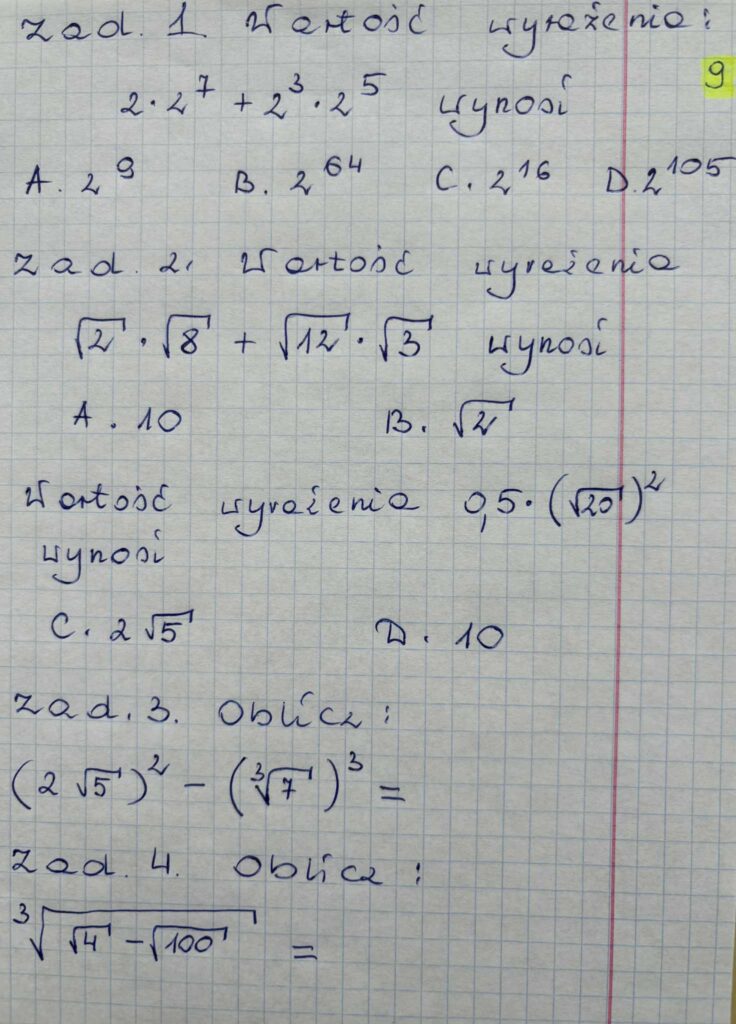 zad. 1 Wartość wyrażenia:
9
2·2⁷ + 2³·2⁵ wynosi
A. 2⁹ B. 2⁶⁴ C. 2¹⁶ D. 2¹⁰⁵
zad. 2. Wartość wyrażenia
√2 · √8 + √12 · √3 wynosi
A. 10 B. √2
Wartość wyrażenia 0,5·(√20)²
wynosi
C. 2√5 D. 10
zad. 3. Oblicz:
(2√5)² – (∛7)³ =
zad. 4. Oblicz:
∛(√4 – √100) =